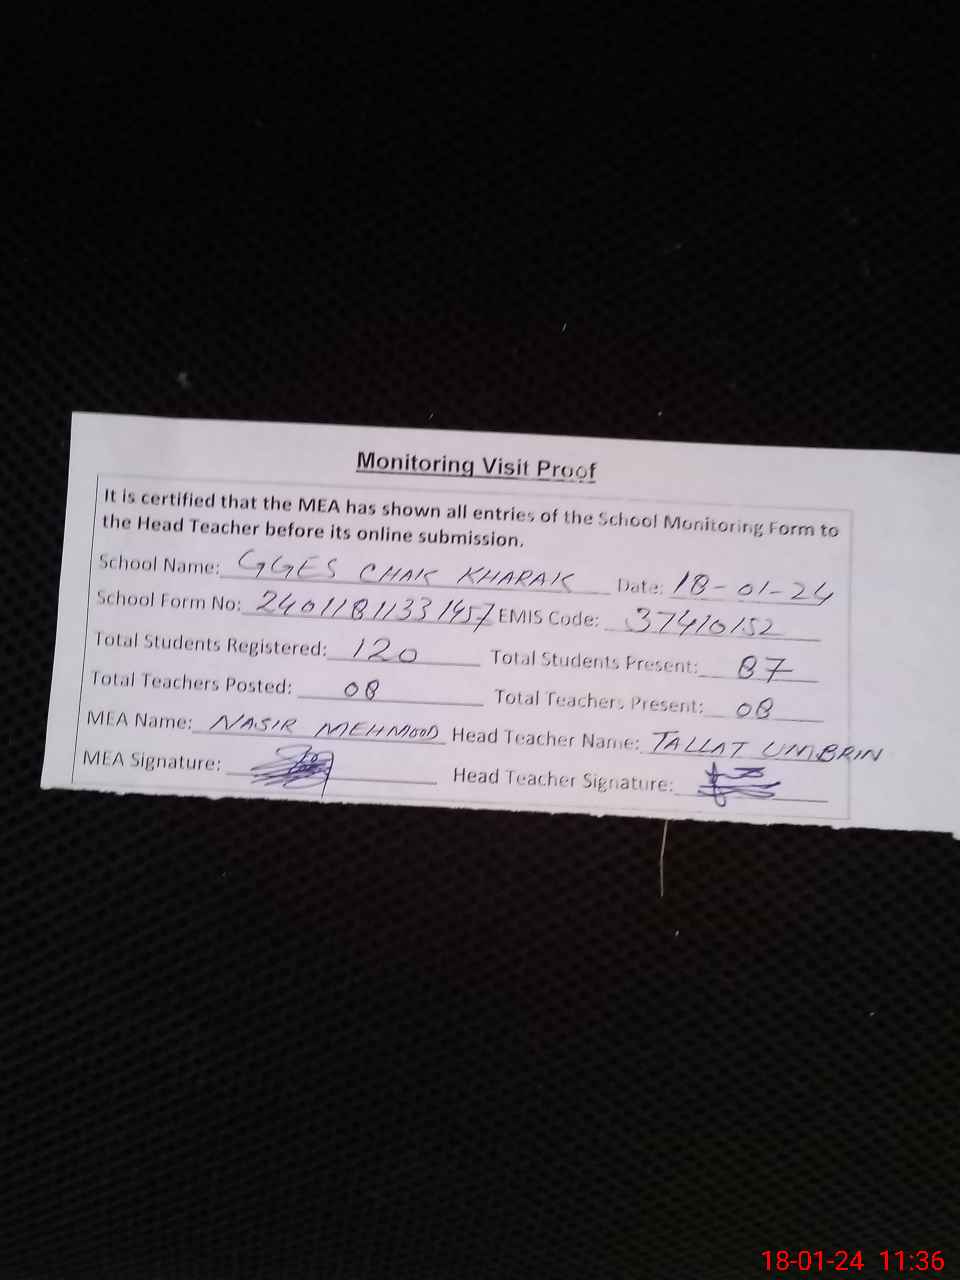 Monitoring Visit Proof
It is certified that the MEA has shown all entries of the School Monitoring Form to
the Head Teacher before its online submission.
School Name: GGES CHAK KHARAK Date: 18-01-24
School Form No: 24011811331457 EMIS Code: 37410152
Total Students Registered: 120 Total Students Present: 87
Total Teachers Posted: 08 Total Teachers Present: 08
MEA Name: NASIR MEHMOOD Head Teacher Name: TALLAT UMBRIN
MEA Signature: Head Teacher Signature:
18-01-24 11:36